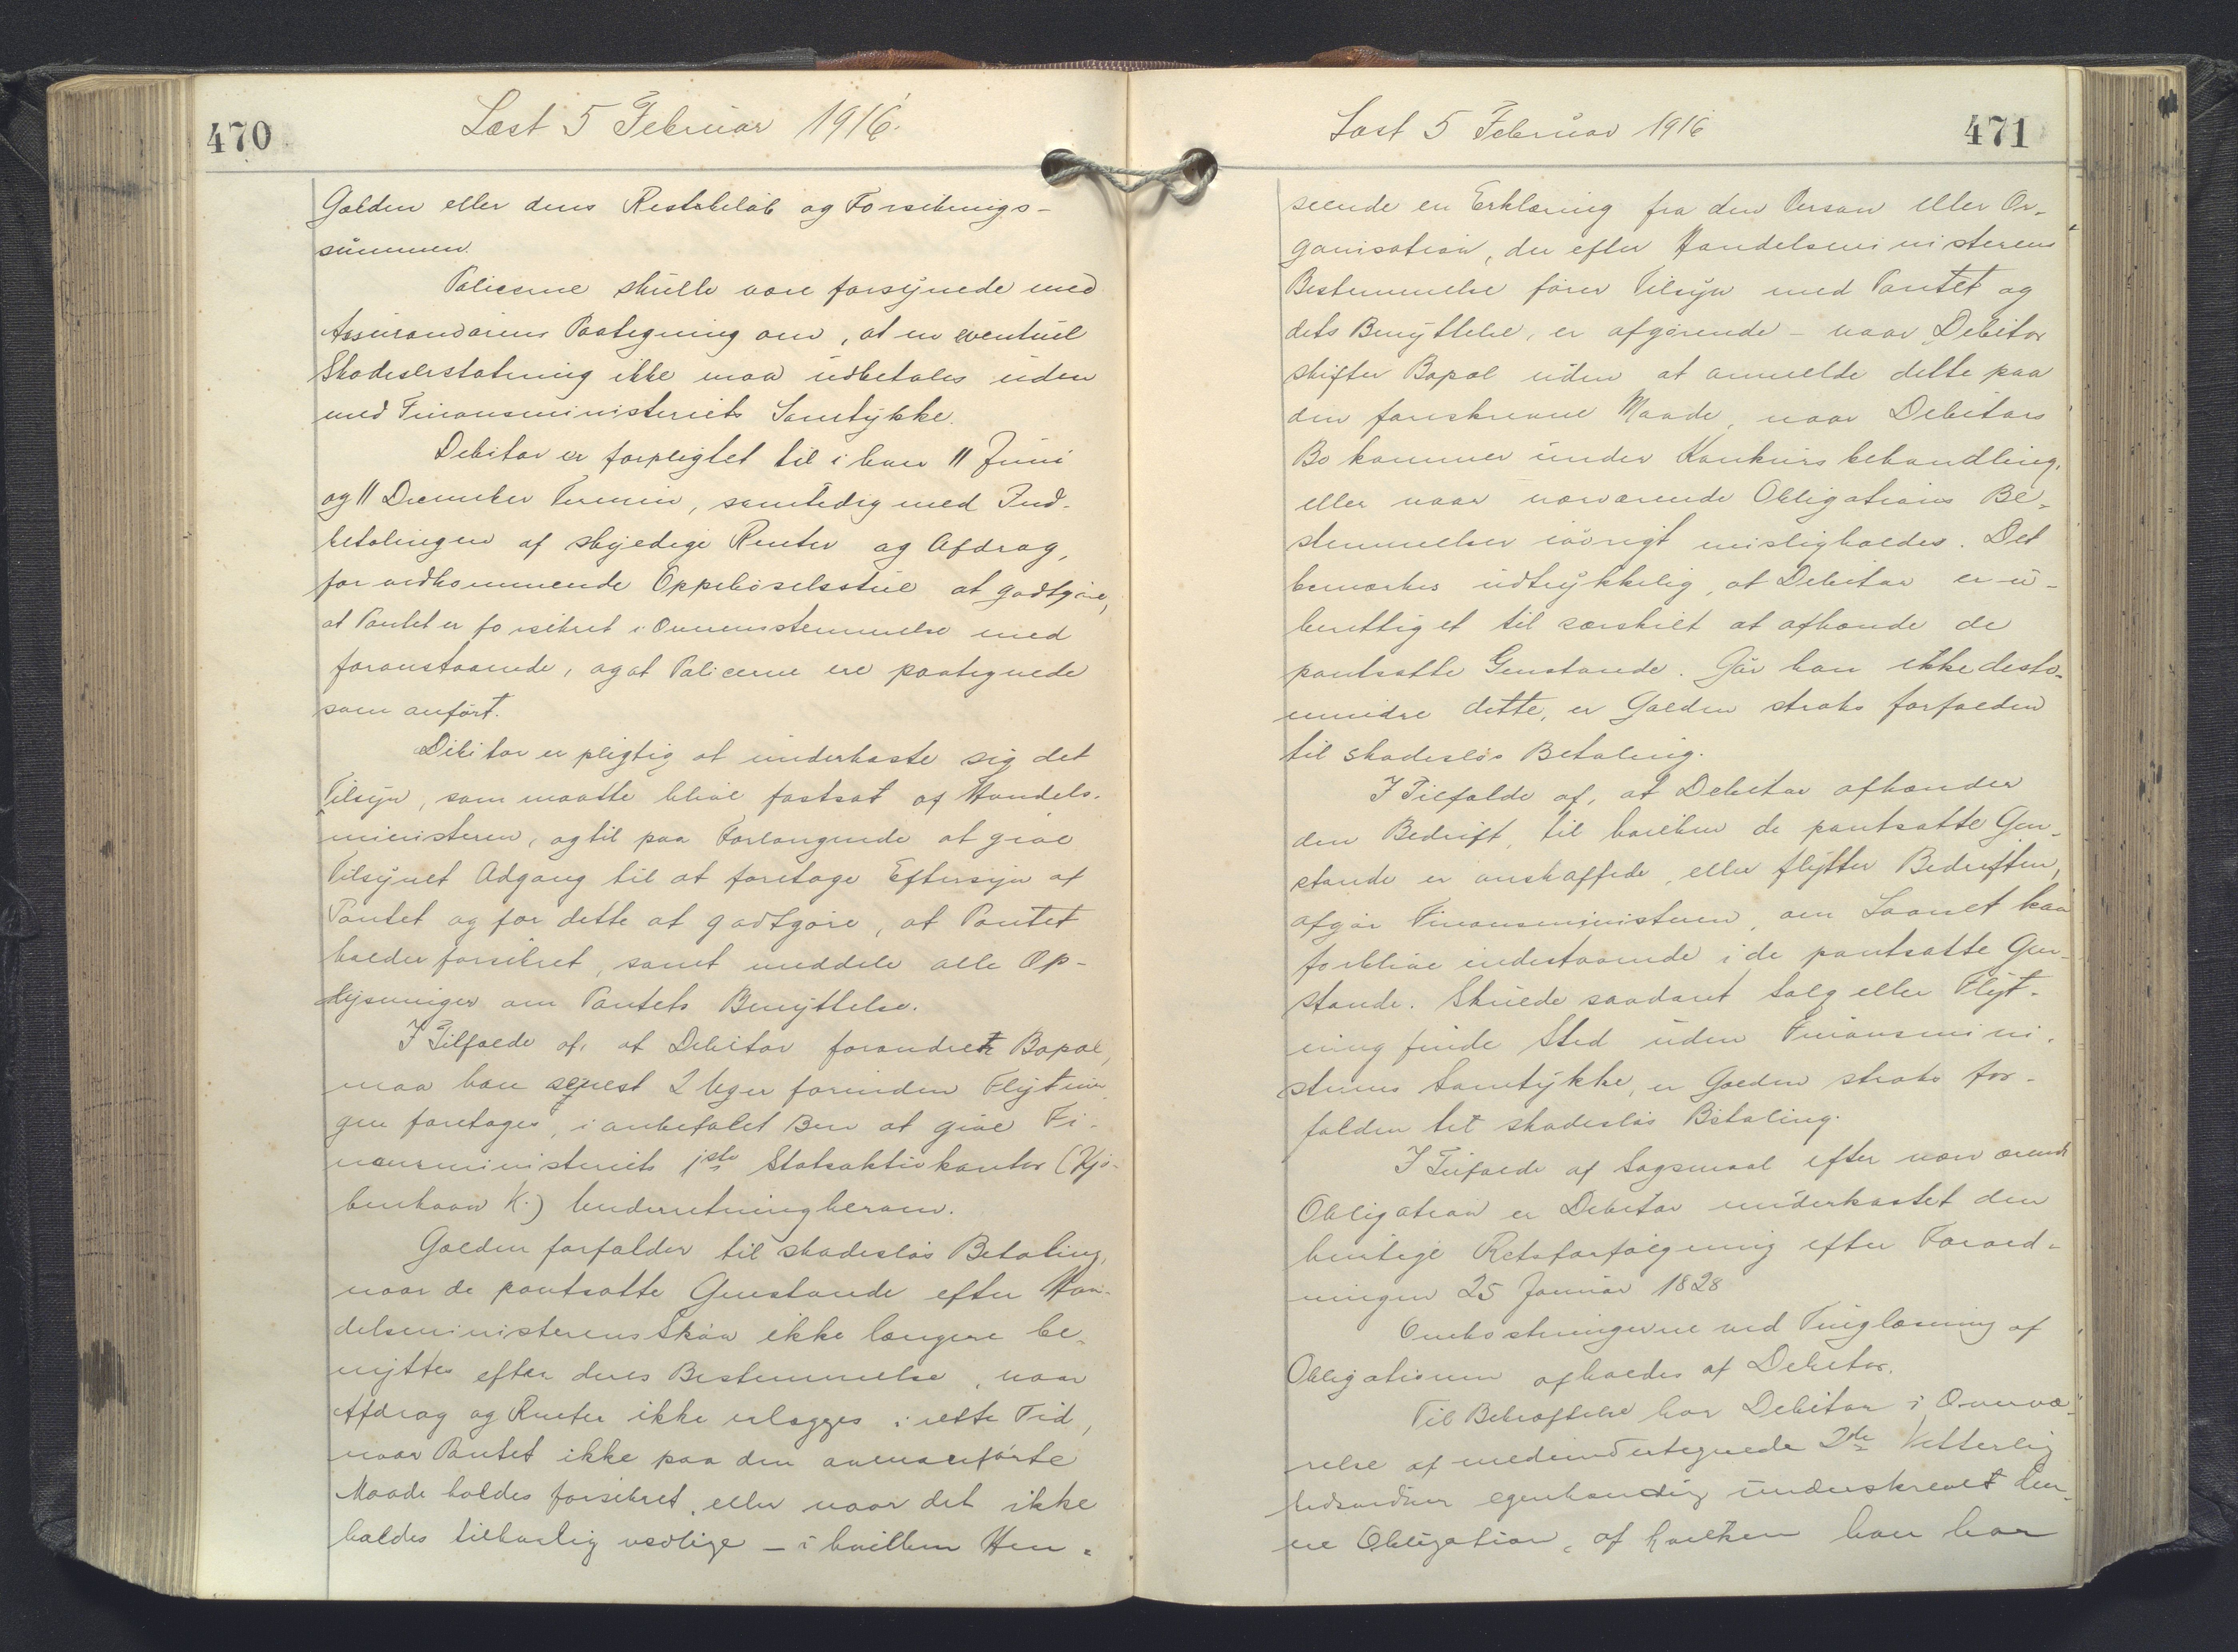 470
Læst 5 Februar 1916.
Gælden eller dens Restbeløb og Forsikrings-
summen.
Policerne skulle være forsynede med
Assurandørens Paategning om, at en eventuel
Skadeserstatning ikke maa udbetales uden
med Finansministeriets Samtykke.
Debitor er forpligtet til i hver 11 Juni
og 11 December Termin, samtidig med Ind-
betalingen af skyldige Renter og Afdrag,
for vedkommende Oppebørselsstue at godtgøre,
at Pantet er forsikret i Overensstemmelse med
foranstaaende, og at Policerne ere paategnede
som anført.
Debitor er pligtig at underkaste sig det
Tilsyn, som maatte blive fastsat af Handels-
ministeren, og til paa Forlangende at give
Tilsynet Adgang til at foretage Eftersyn af
Pantet og for dette at godtgøre, at Pantet
holdes forsikret, samt meddele alle Op-
lysninger om Pantets Benyttelse.
I Tilfælde af, at Debitor forandrer Bopæl,
maa han senest 2 Uger forinden Flytnin-
gen foretages, i anbefalet Brev at give Fi-
nansministeriets 1ste Statsaktivkontor (Kjø-
benhavn K.) Underretning herom.
Gælden forfalder til skadesløs Betaling,
naar de pantsatte Genstande efter Han-
delsministerens Skøn ikke længere be-
nyttes efter deres Bestemmelse, naar
Afdrag og Renter ikke erlægges i rette Tid,
naar Pantet ikke paa den ovenanførte
Maade holdes forsikret, eller naar det ikke
holdes tilbørlig vedlige – i hvilken Hen-
Læst 5 Februar 1916
471
seende en Erklæring fra den Person eller Or-
ganisation, der efter Handelsministerens
Bestemmelse fører Tilsyn med Pantet og
dets Benyttelse, er afgørende – naar Debitor
skifter Bopæl uden at anmelde dette paa
den foreskrevne Maade, naar Debitors
Bo kommer under Konkursbehandling,
eller naar nærværende Obligations Be-
stemmelser iøvrigt misligholdes. Det
bemærkes udtrykkelig, at Debitor er u-
berettiget til særskilt at afhænde de
pantsatte Genstande. Gør han ikke desto-
mindre dette, er Gælden straks forfalden
til skadesløs Betaling.
I Tilfælde af, at Debitor afhænder
den Bedrift, til hvilken de pantsatte Gen-
stande er anskaffede, eller flytter Bedriften,
afgør Finansministeren, om Laanet kan
forblive indestaaende i de pantsatte Gen-
stande. Skulde saadant Salg eller Flyt-
ning finde Sted uden Finansmini-
sterens Samtykke, er Gælden straks for-
falden til skadesløs Betaling.
I Tilfælde af Søgsmaal efter nærværende
Obligation er Debitor underkastet den
hurtige Retsforfølgning efter Forord-
ningen 25 Januar 1828
Omkostningerne ved Tinglæsning af
Obligationen afholdes af Debitor.
Til Bekræftelse har Debitor i Overvæ-
relse af medundertegnede 2de Vitterlig-
hedsvidner egenhændig underskrevet den-
ne Obligation, af hvilken han har